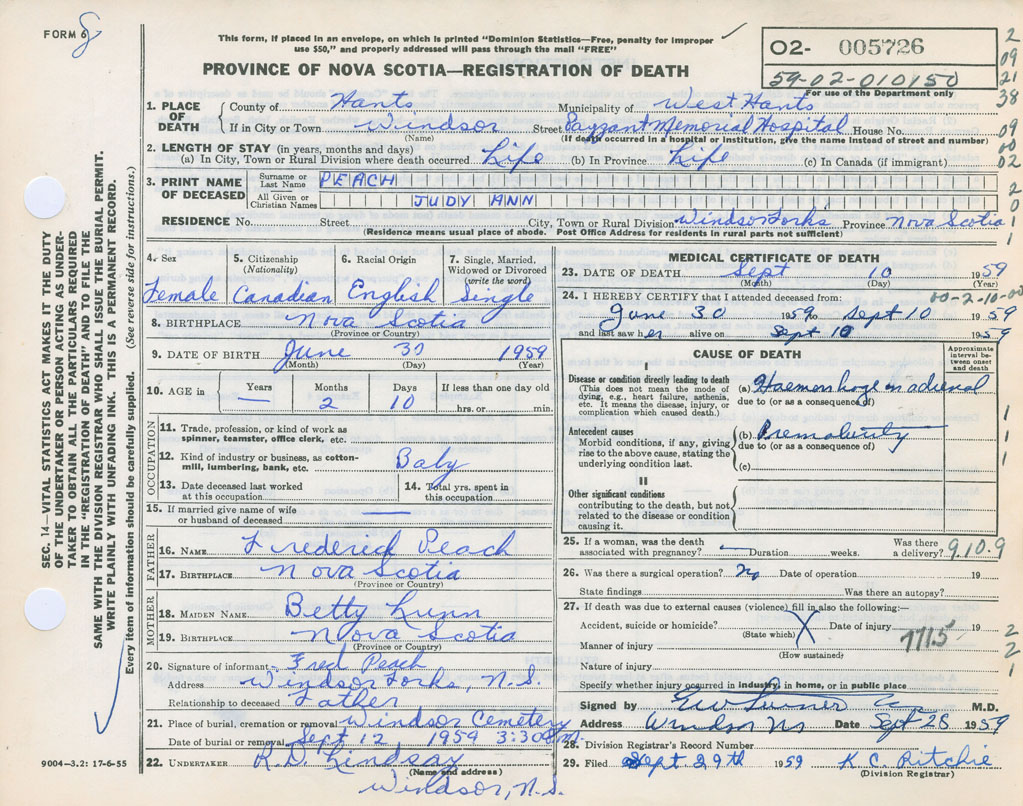 FORM 6 8
This form, if placed in an envelope, on which is printed "Dominion Statistics—Free, penalty for improper
use $50," and properly addressed will pass through the mail "FREE"
O2- 005726
59-02-010150
For use of the Department only
PROVINCE OF NOVA SCOTIA—REGISTRATION OF DEATH
2
09
21
38
09
00
02
2
0
1
1
1. PLACE OF DEATH
County of Hants Municipality of West Hants
If in City or Town Windsor Street Payzant Memorial Hospital House No.
(Name) (If death occurred in a hospital or institution, give the name instead of street and number)
2. LENGTH OF STAY (in years, months and days)
(a) In City, Town or Rural Division where death occurred Life (b) In Province Life (c) In Canada (if immigrant)
3. PRINT NAME OF DECEASED
Surname or Last Name PEACH
All Given or Christian Names JUDY ANN
RESIDENCE No. Street City, Town or Rural Division Windsor Forks Province Nova Scotia
(Residence means usual place of abode. Post Office Address for residents in rural parts not sufficient)
4. Sex Female
5. Citizenship (Nationality) Canadian
6. Racial Origin English
7. Single, Married, Widowed or Divorced (write the word) Single
8. BIRTHPLACE Nova Scotia
(Province or Country)
9. DATE OF BIRTH June 30 1959
(Month) (Day) (Year)
10. AGE in Years — Months 2 Days 10 If less than one day old hrs. or min.
OCCUPATION
11. Trade, profession, or kind of work as
spinner, teamster, office clerk, etc.
12. Kind of industry or business, as cotton-
mill, lumbering, bank, etc. Baby
13. Date deceased last worked
at this occupation
14. Total yrs. spent in
this occupation
15. If married give name of wife
or husband of deceased —
FATHER
16. NAME Frederick Peach
17. BIRTHPLACE Nova Scotia
(Province or Country)
MOTHER
18. MAIDEN NAME Betty Lunn
19. BIRTHPLACE Nova Scotia
(Province or Country)
20. Signature of informant Fred Peach
Address Windsor Forks, N.S.
Relationship to deceased Father
21. Place of burial, cremation or removal Windsor Cemetery
Date of burial or removal Sept 12 1959 3:30 P.M.
22. UNDERTAKER R.D. Lindsay
(Name and address)
Windsor, N.S.
9004-3.2: 17-6-55
MEDICAL CERTIFICATE OF DEATH
23. DATE OF DEATH Sept 10 1959
(Month) (Day) (Year)
24. I HEREBY CERTIFY that I attended deceased from: 00-2-10-00
June 30 1959 to Sept 10 1959
and last saw her alive on Sept 10 1959
CAUSE OF DEATH
Approximate interval between onset and death
I
Disease or condition directly leading to death
(This does not mean the mode of
dying, e.g., heart failure, asthenia,
etc. It means the disease, injury, or
complication which caused death.)
(a) Haemorrhage in adrenal
due to (or as a consequence of)
Antecedent causes
Morbid conditions, if any, giving
rise to the above cause, stating the
underlying condition last.
(b) Prematurity
due to (or as a consequence of)
(c)
1
1
1
II
Other significant conditions
contributing to the death, but not
related to the disease or condition
causing it.
25. If a woman, was the death
associated with pregnancy? — Duration weeks. Was there a delivery? 9.10.9
26. Was there a surgical operation? No Date of operation 19
State findings Was there an autopsy?
27. If death was due to external causes (violence) fill in also the following:—
Accident, suicide or homicide? Date of injury 19
(State which) X
7715
2
2
1
Manner of injury
(How sustained)
Nature of injury
Specify whether injury occurred in industry, in home, or in public place
Signed by E W Turner M.D.
Address Windsor NS Date Sept 28 1959
28. Division Registrar's Record Number
29. Filed Sept 29th 1959 K C Ritchie
(Division Registrar)
SEC. 14—VITAL STATISTICS ACT MAKES IT THE DUTY
OF THE UNDERTAKER OR PERSON ACTING AS UNDER-
TAKER TO OBTAIN ALL THE PARTICULARS REQUIRED
IN THE "REGISTRATION OF DEATH" AND TO FILE THE
SAME WITH THE DIVISION REGISTRAR WHO SHALL ISSUE THE BURIAL PERMIT.
WRITE PLAINLY WITH UNFADING INK. THIS IS A PERMANENT RECORD.
Every item of information should be carefully supplied. (See reverse side for instructions.)